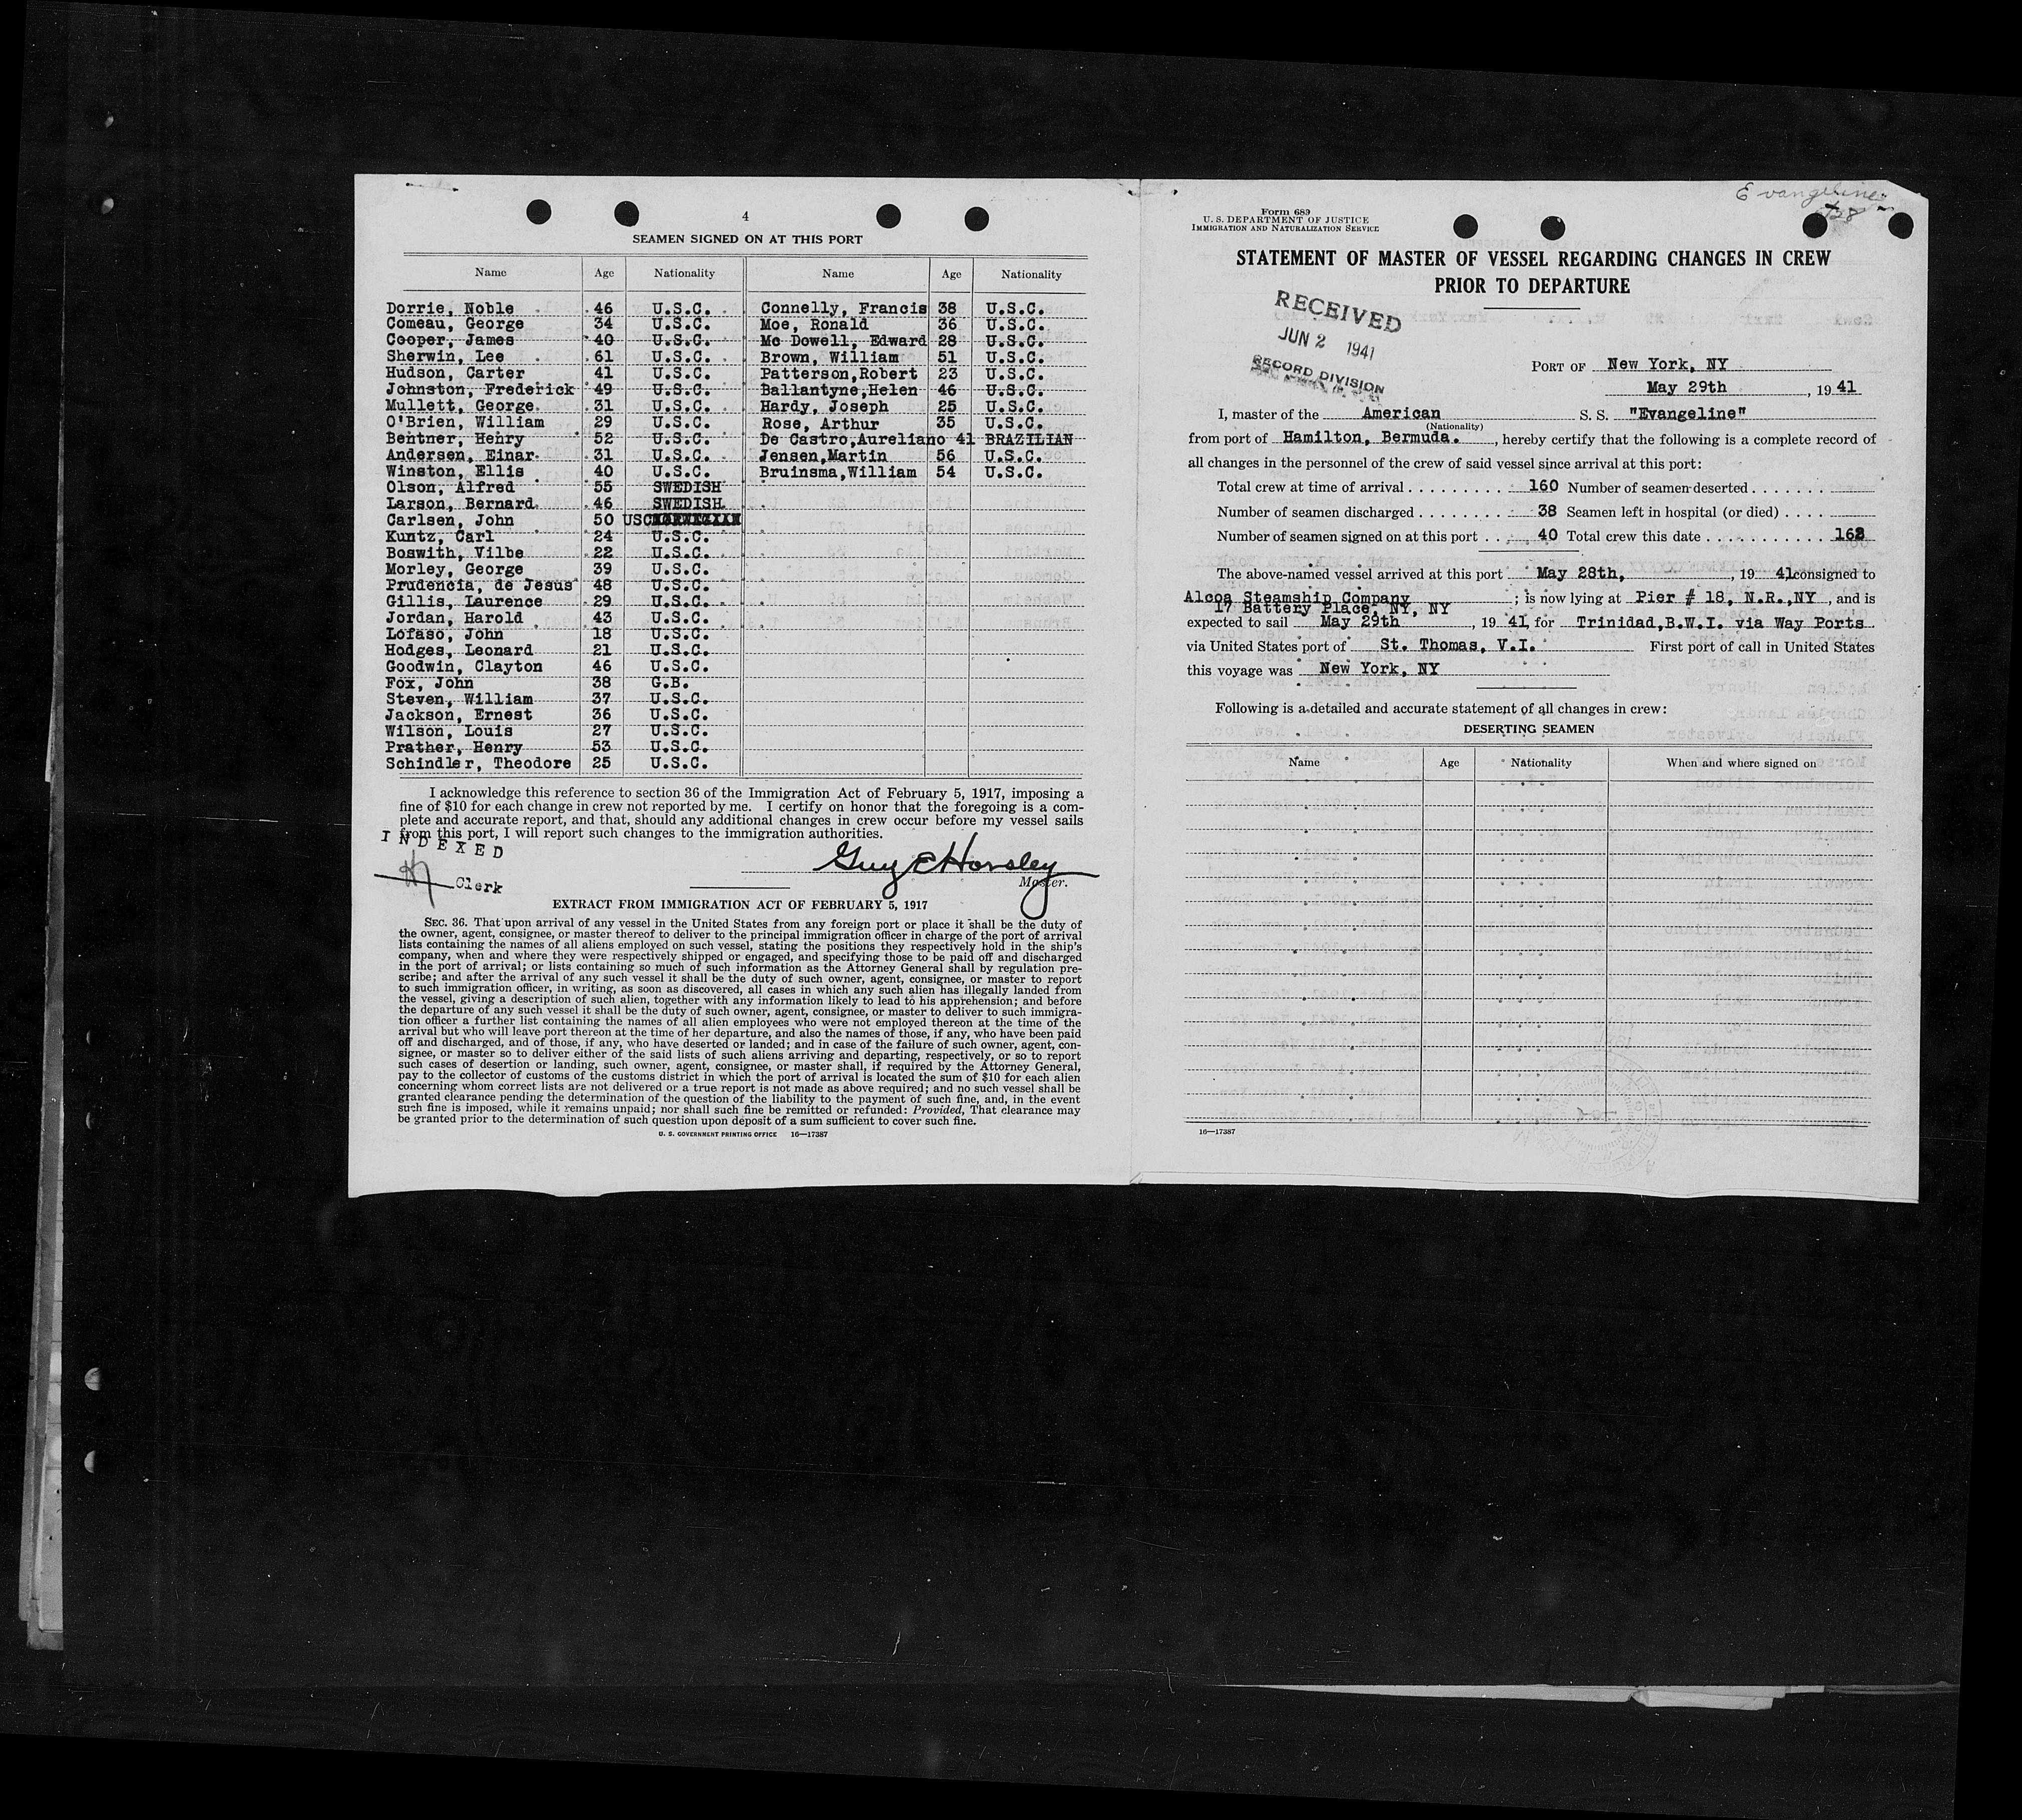 4
SEAMEN SIGNED ON AT THIS PORT
Name Age Nationality Name Age Nationality
Dorrie, Noble 46 U.S.C. Connelly, Francis 38 U.S.C.
Comeau, George 34 U.S.C. Moe, Ronald 36 U.S.C.
Cooper, James 40 U.S.C. Mc Dowell, Edward 28 U.S.C.
Sherwin, Lee 61 U.S.C. Brown, William 51 U.S.C.
Hudson, Carter 41 U.S.C. Patterson,Robert 23 U.S.C.
Johnston, Frederick 49 U.S.C. Ballantyne,Helen 46 U.S.C.
Mullett, George 31 U.S.C. Hardy, Joseph 25 U.S.C.
O'Brien, William 29 U.S.C. Rose, Arthur 35 U.S.C.
Bentner, Henry 52 U.S.C. De Castro,Aureliano 41 BRAZILIAN
Andersen, Einar 31 U.S.C. Jensen,Martin 56 U.S.C.
Winston, Ellis 40 U.S.C. Bruinsma,William 54 U.S.C.
Olson, Alfred 55 SWEDISH
Larson, Bernard 46 SWEDISH
Carlsen, John 50 USC
Kuntz, Carl 24 U.S.C.
Boswith, Vilbe 22 U.S.C.
Morley, George 39 U.S.C.
Prudencia, de Jesus 48 U.S.C.
Gillis, Laurence 29 U.S.C.
Jordan, Harold 43 U.S.C.
Lofaso, John 18 U.S.C.
Hodges, Leonard 21 U.S.C.
Goodwin, Clayton 46 U.S.C.
Fox, John 38 G.B.
Steven, William 37 U.S.C.
Jackson, Ernest 36 U.S.C.
Wilson, Louis 27 U.S.C.
Prather, Henry 53 U.S.C.
Schindler, Theodore 25 U.S.C.
I acknowledge this reference to section 36 of the Immigration Act of February 5, 1917, imposing a
fine of $10 for each change in crew not reported by me. I certify on honor that the foregoing is a com-
plete and accurate report, and that, should any additional changes in crew occur before my vessel sails
from this port, I will report such changes to the immigration authorities.
INDEXED
Clerk
Guy E Horsley
Master.
EXTRACT FROM IMMIGRATION ACT OF FEBRUARY 5, 1917
SEC. 36. That upon arrival of any vessel in the United States from any foreign port or place it shall be the duty of
the owner, agent, consignee, or master thereof to deliver to the principal immigration officer in charge of the port of arrival
lists containing the names of all aliens employed on such vessel, stating the positions they respectively hold in the ship's
company, when and where they were respectively shipped or engaged, and specifying those to be paid off and discharged
in the port of arrival; or lists containing so much of such information as the Attorney General shall by regulation pre-
scribe; and after the arrival of any such vessel it shall be the duty of such owner, agent, consignee, or master to report
to such immigration officer, in writing, as soon as discovered, all cases in which any such alien has illegally landed from
the vessel, giving a description of such alien, together with any information likely to lead to his apprehension; and before
the departure of any such vessel it shall be the duty of such owner, agent, consignee, or master to deliver to such immigra-
tion officer a further list containing the names of all alien employees who were not employed thereon at the time of the
arrival but who will leave port thereon at the time of her departure, and also the names of those, if any, who have been paid
off and discharged, and of those, if any, who have deserted or landed; and in case of the failure of such owner, agent, con-
signee, or master so to deliver either of the said lists of such aliens arriving and departing, respectively, or so to report
such cases of desertion or landing, such owner, agent, consignee, or master shall, if required by the Attorney General,
pay to the collector of customs of the customs district in which the port of arrival is located the sum of $10 for each alien
concerning whom correct lists are not delivered or a true report is not made as above required; and no such vessel shall be
granted clearance pending the determination of the question of the liability to the payment of such fine, and, in the event
such fine is imposed, while it remains unpaid; nor shall such fine be remitted or refunded: Provided, That clearance may
be granted prior to the determination of such question upon deposit of a sum sufficient to cover such fine.
U. S. GOVERNMENT PRINTING OFFICE 16—17387
Evangeline
5/28
Form 689
U. S. DEPARTMENT OF JUSTICE
IMMIGRATION AND NATURALIZATION SERVICE
STATEMENT OF MASTER OF VESSEL REGARDING CHANGES IN CREW
PRIOR TO DEPARTURE
RECEIVED
JUN 2 1941
RECORD DIVISION
PORT OF New York, NY
May 29th, 1941
I, master of the American S. S. "Evangeline"
(Nationality)
from port of Hamilton, Bermuda., hereby certify that the following is a complete record of
all changes in the personnel of the crew of said vessel since arrival at this port:
Total crew at time of arrival 160 Number of seamen deserted
Number of seamen discharged 38 Seamen left in hospital (or died)
Number of seamen signed on at this port 40 Total crew this date 162
The above-named vessel arrived at this port May 28th, , 19 41 consigned to
Alcoa Steamship Company ; is now lying at Pier # 18, N.R.,NY , and is
17 Battery Place, NY, NY
expected to sail May 29th , 19 41, for Trinidad,B.W.I. via Way Ports
via United States port of St. Thomas, V.I. First port of call in United States
this voyage was New York, NY
Following is a detailed and accurate statement of all changes in crew:
DESERTING SEAMEN
Name Age Nationality When and where signed on
16—17387